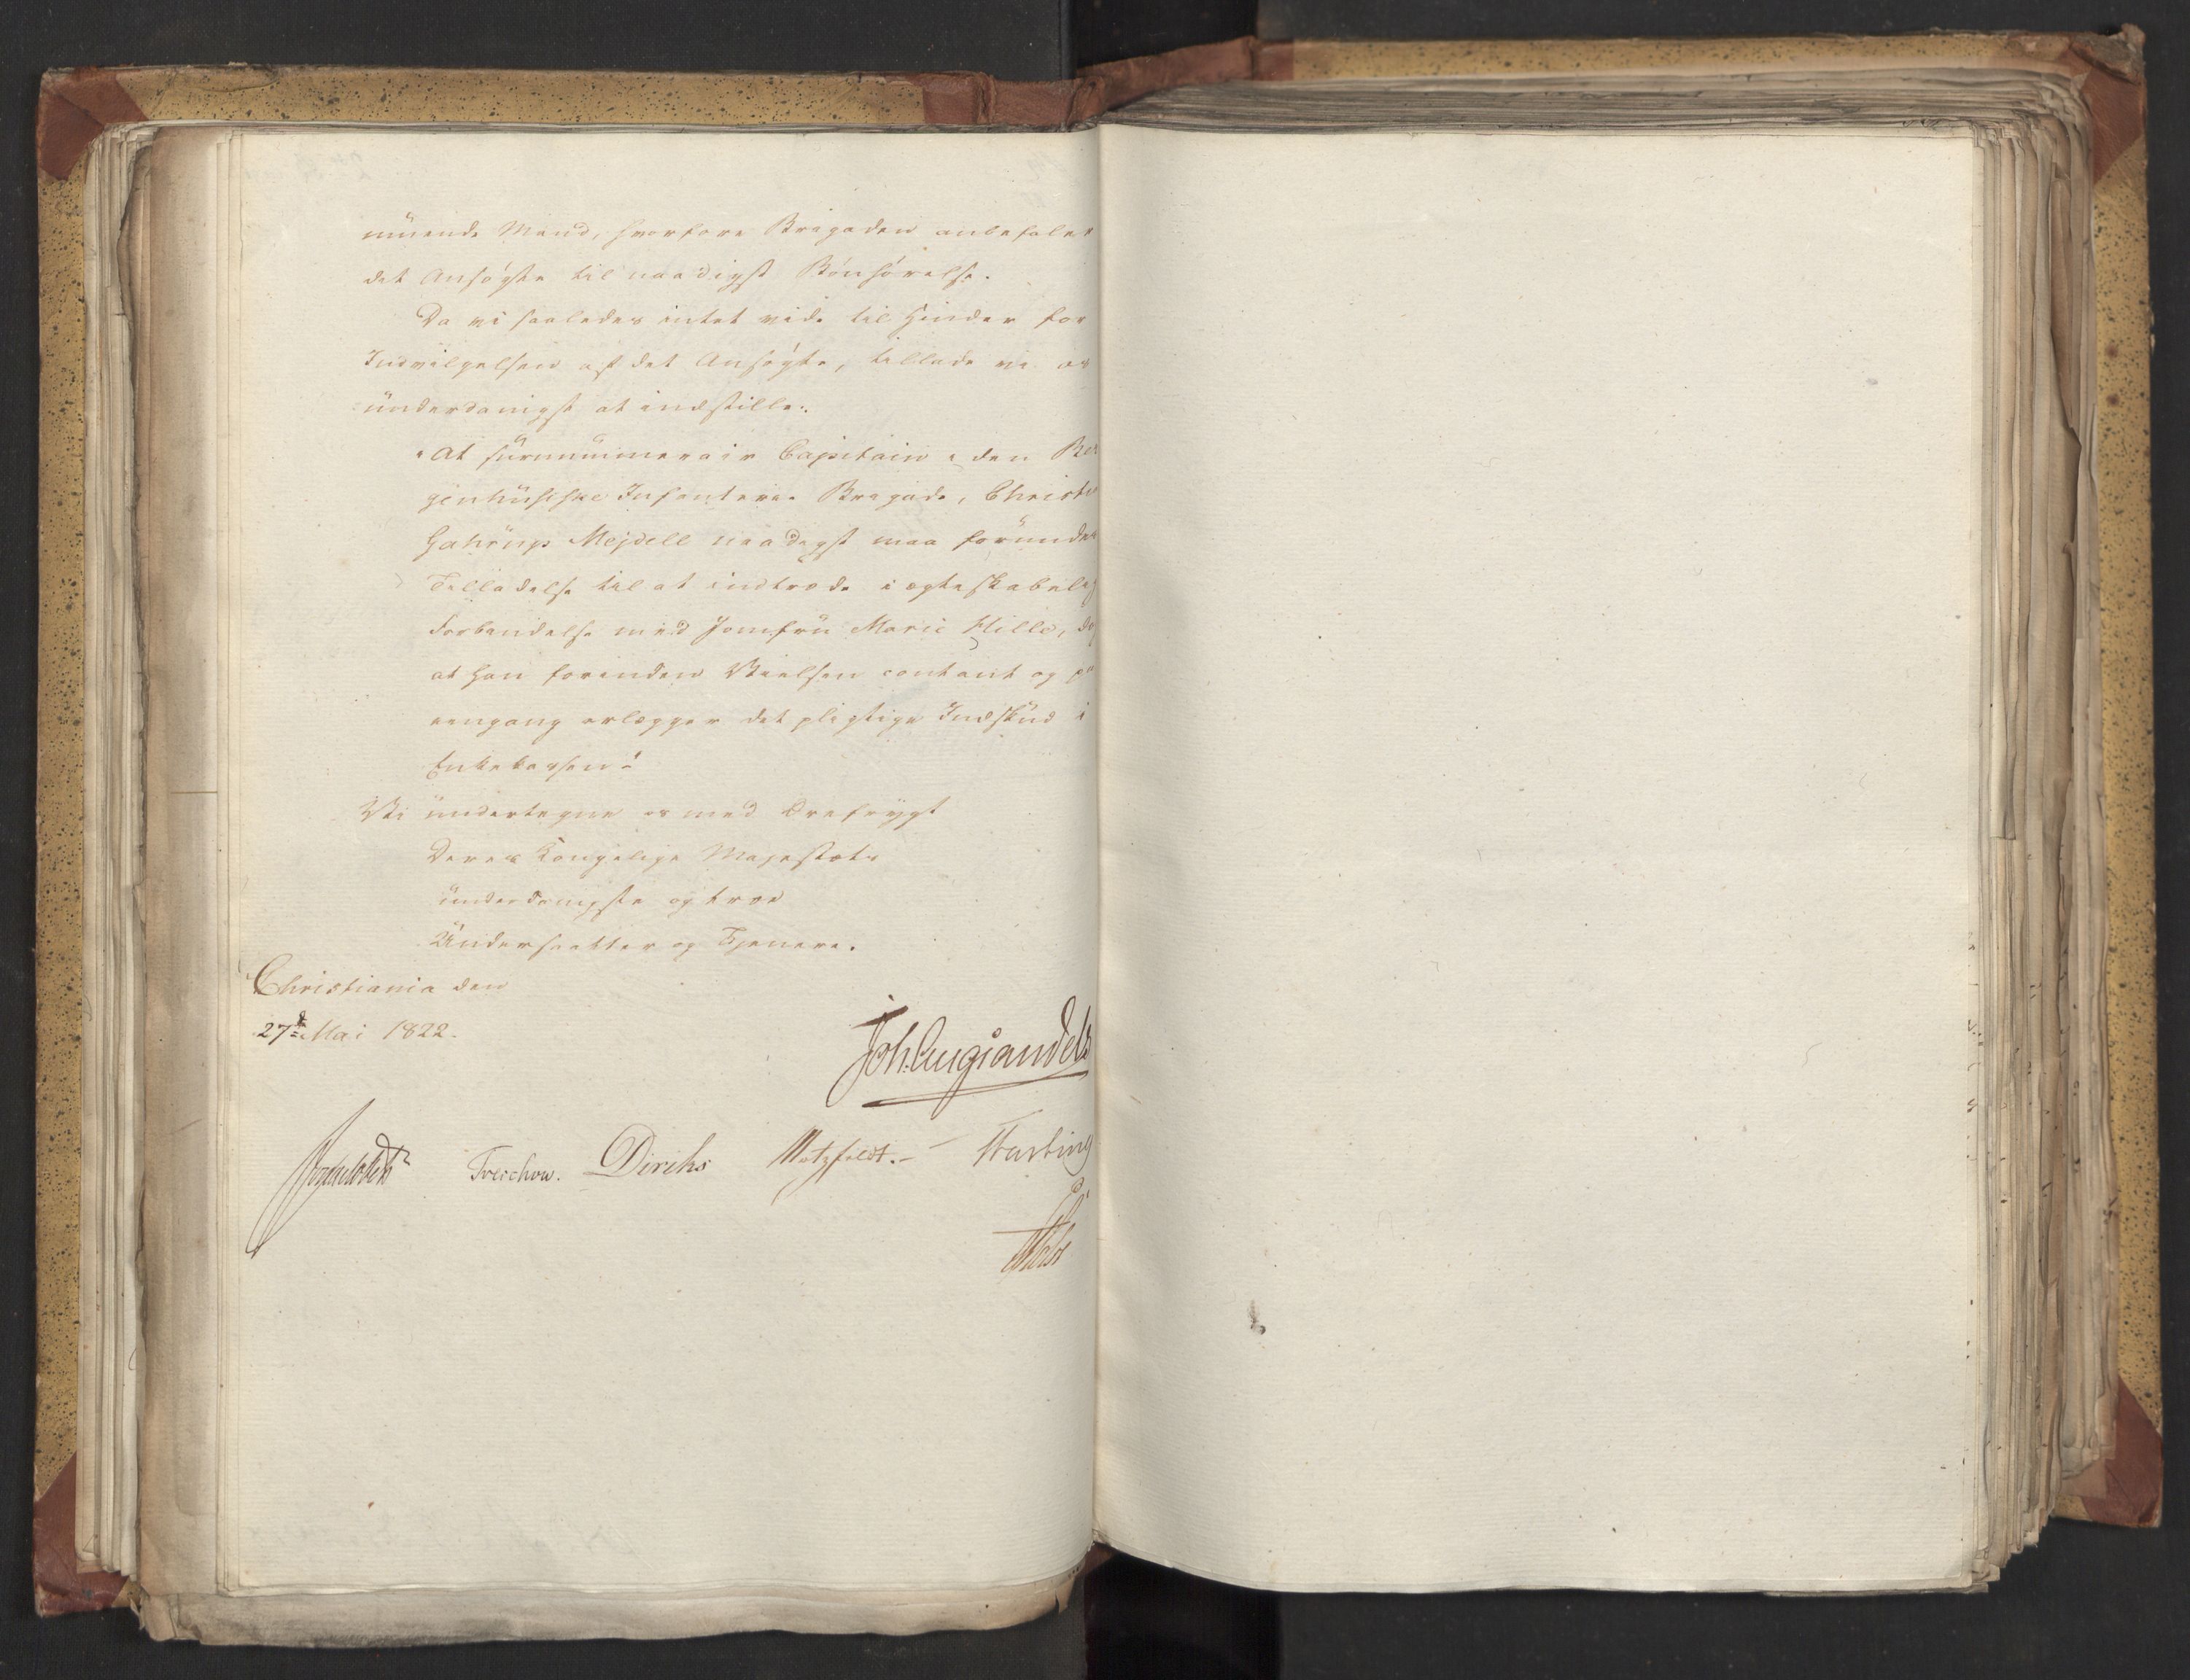 muende Mand, hvorfore Brigaden anbefaler
det Ansøgte til naadigst Bønhørelse.
Da vi saaledes intet vide til Hinder for
Indvilgelsen af det Ansøgte, tillade vi os
underdanigst at indstille:
"At surnummerair Capitain i den Ber
genhusiske Infanterie Brigade, Christen
Gahrup Mejdell naadigst maa forundes
Tilladelse til at indtræde i ægteskabelig
Forbindelse med Jomfru Marie Hille, dog
at han forinden Vielsen contant og paa
eengang erlægger det pligtige Indskud i
Enkekassen"
Vi undertegne os med Ærefrygt
Deres Kongelige Majestæts
underdanigste og troe
Undersaatter og Tjenere.
Christiania den
27de Mai 1822.
Joh. Aug. Sandels
Treschow. Diriks Motzfeldt. Fasting